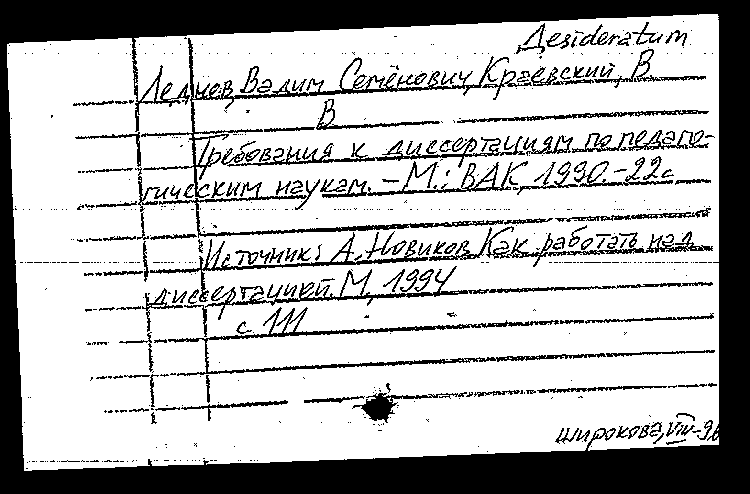 Дesideratum
Леднев, Вадим Семёнович, Краевский, В
В
Требования к диссертациям по педаго-
гическим наукам. – М.: ВАК, 1990.-22с
Источник: А. Новиков Как работать над
диссертацией. М., 1994
с 111
широкова, VIII-96